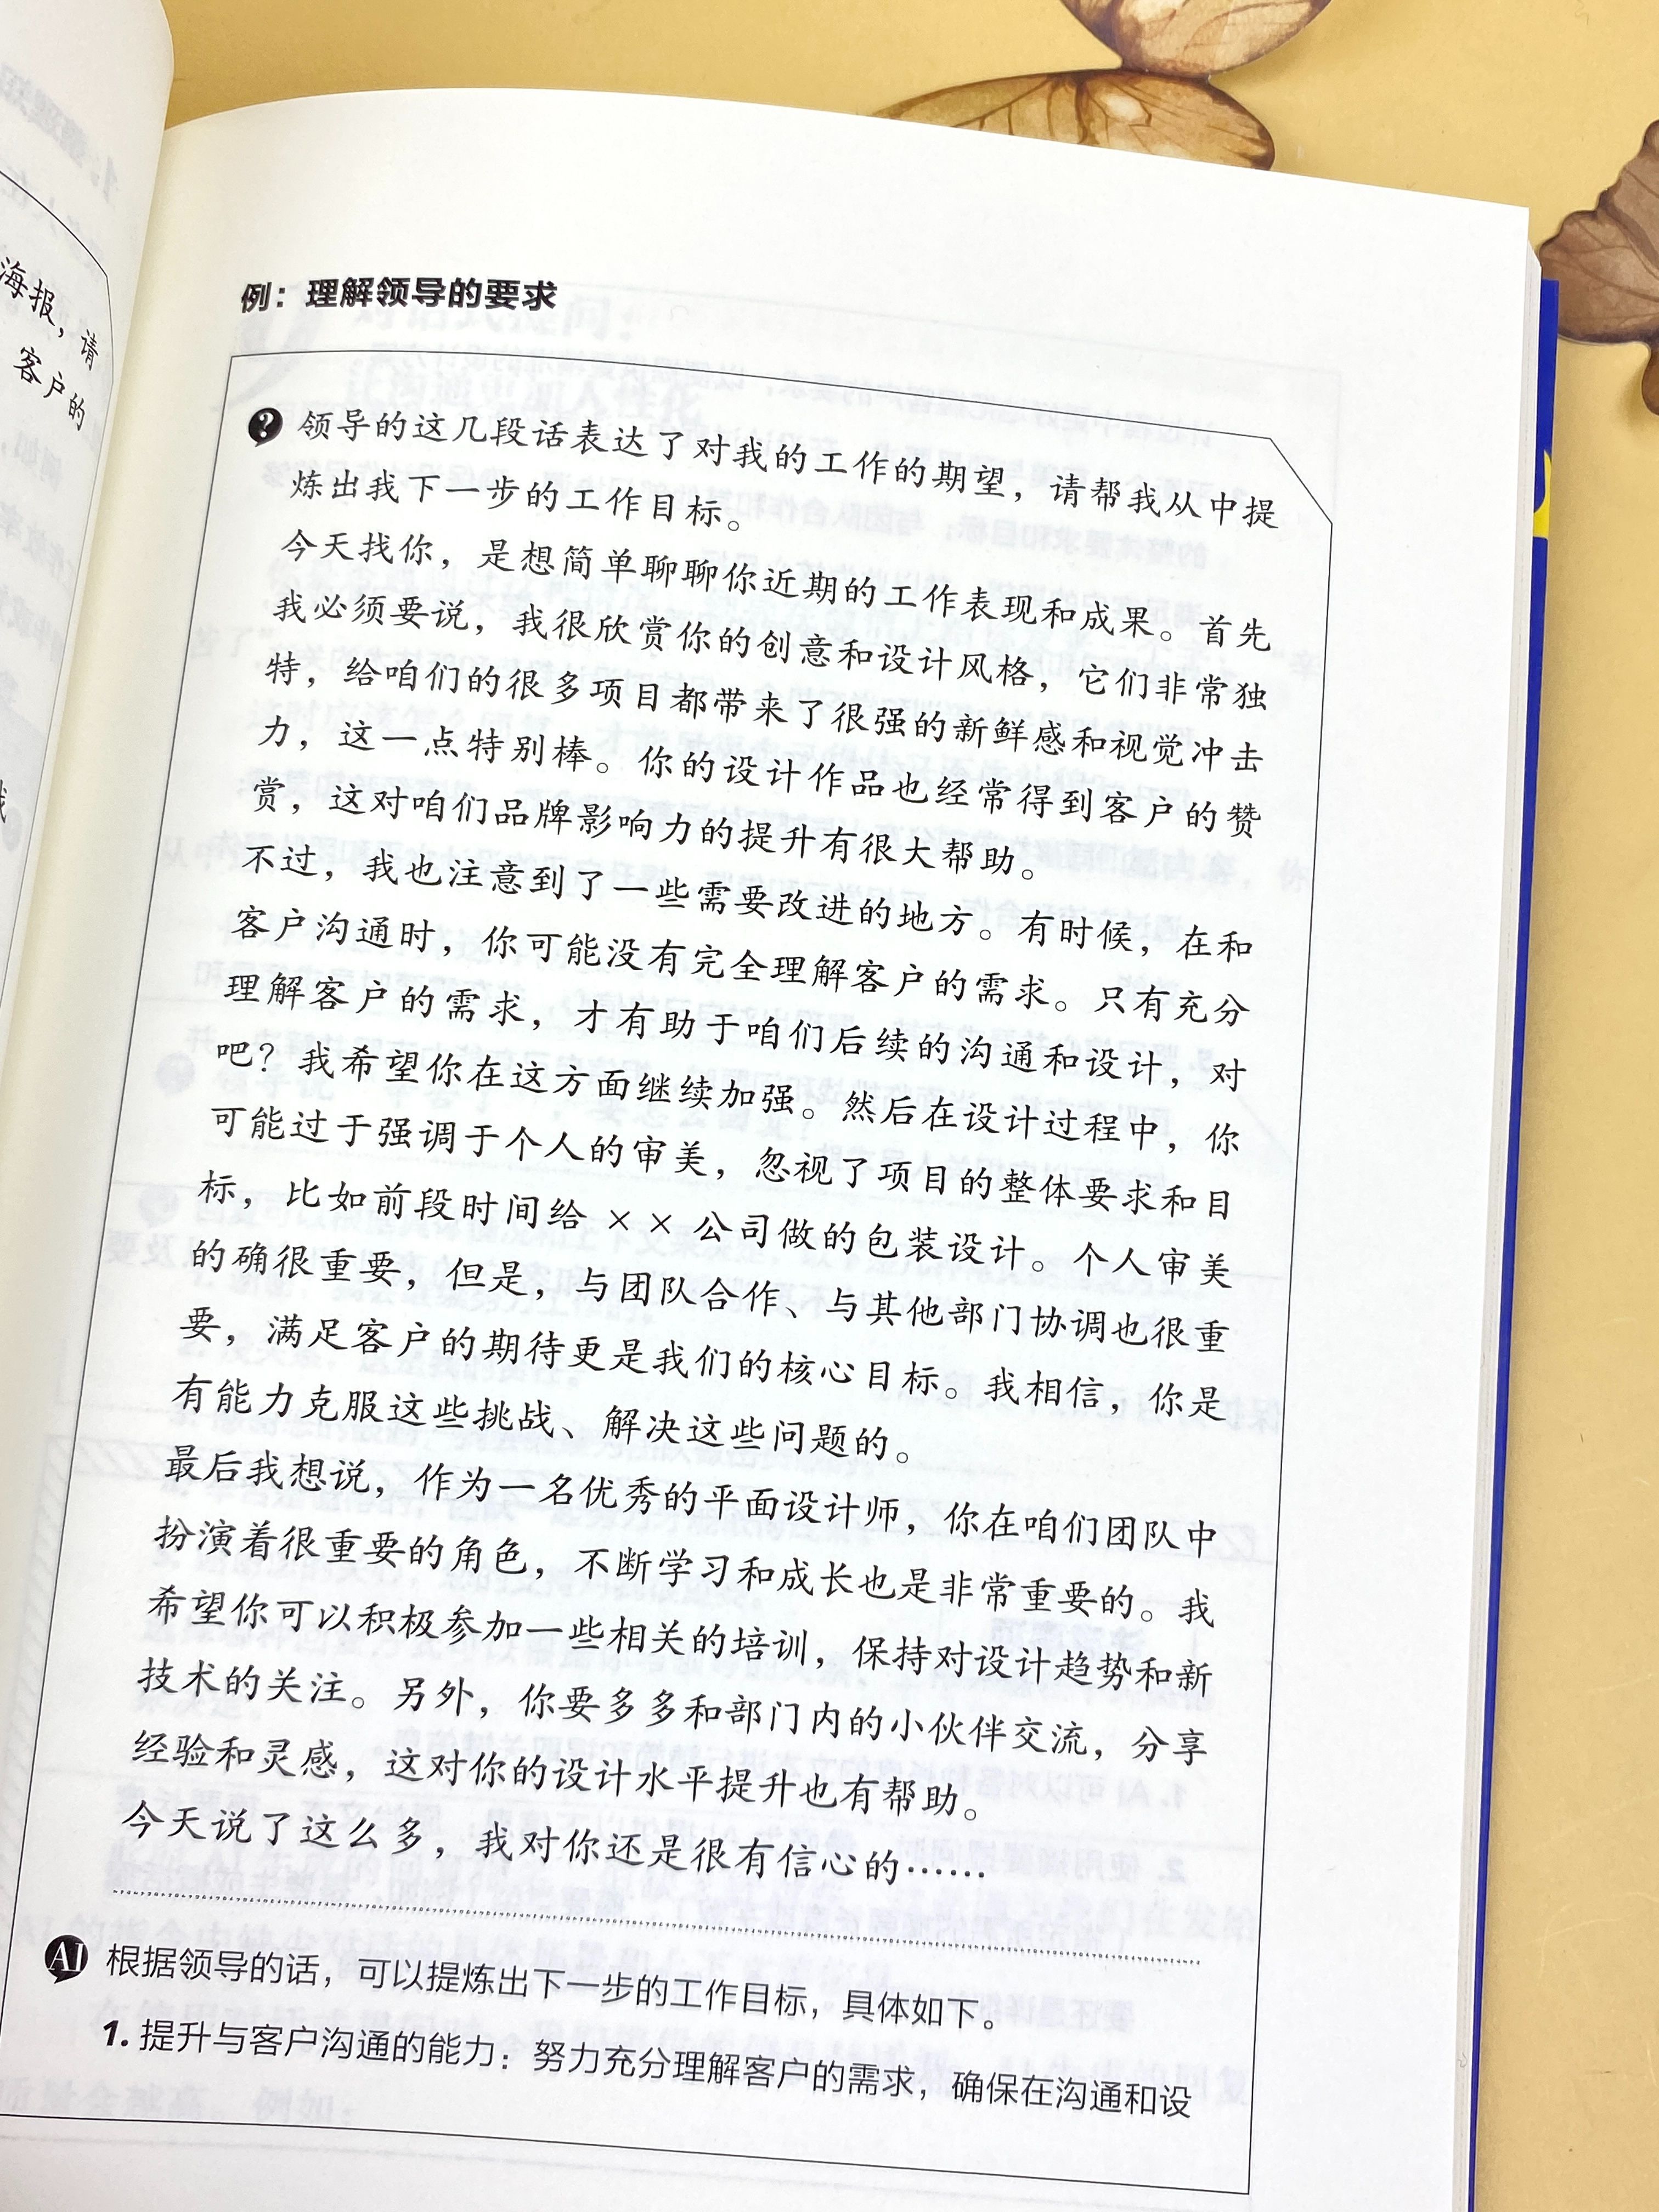 海报，请
客户的
例：理解领导的要求
? 领导的这几段话表达了对我的工作的期望，请帮我从中提
炼出我下一步的工作目标。
今天找你，是想简单聊聊你近期的工作表现和成果。首先
我必须要说，我很欣赏你的创意和设计风格，它们非常独
特，给咱们的很多项目都带来了很强的新鲜感和视觉冲击
力，这一点特别棒。你的设计作品也经常得到客户的赞
赏，这对咱们品牌影响力的提升有很大帮助。
不过，我也注意到了一些需要改进的地方。有时候，在和
客户沟通时，你可能没有完全理解客户的需求。只有充分
理解客户的需求，才有助于咱们后续的沟通和设计，对
吧？我希望你在这方面继续加强。然后在设计过程中，你
可能过于强调于个人的审美，忽视了项目的整体要求和目
标，比如前段时间给 × × 公司做的包装设计。个人审美
的确很重要，但是，与团队合作、与其他部门协调也很重
要，满足客户的期待更是我们的核心目标。我相信，你是
有能力克服这些挑战、解决这些问题的。
最后我想说，作为一名优秀的平面设计师，你在咱们团队中
扮演着很重要的角色，不断学习和成长也是非常重要的。我
希望你可以积极参加一些相关的培训，保持对设计趋势和新
技术的关注。另外，你要多多和部门内的小伙伴交流，分享
经验和灵感，这对你的设计水平提升也有帮助。
今天说了这么多，我对你还是很有信心的……
AI 根据领导的话，可以提炼出下一步的工作目标，具体如下。
1. 提升与客户沟通的能力：努力充分理解客户的需求，确保在沟通和设